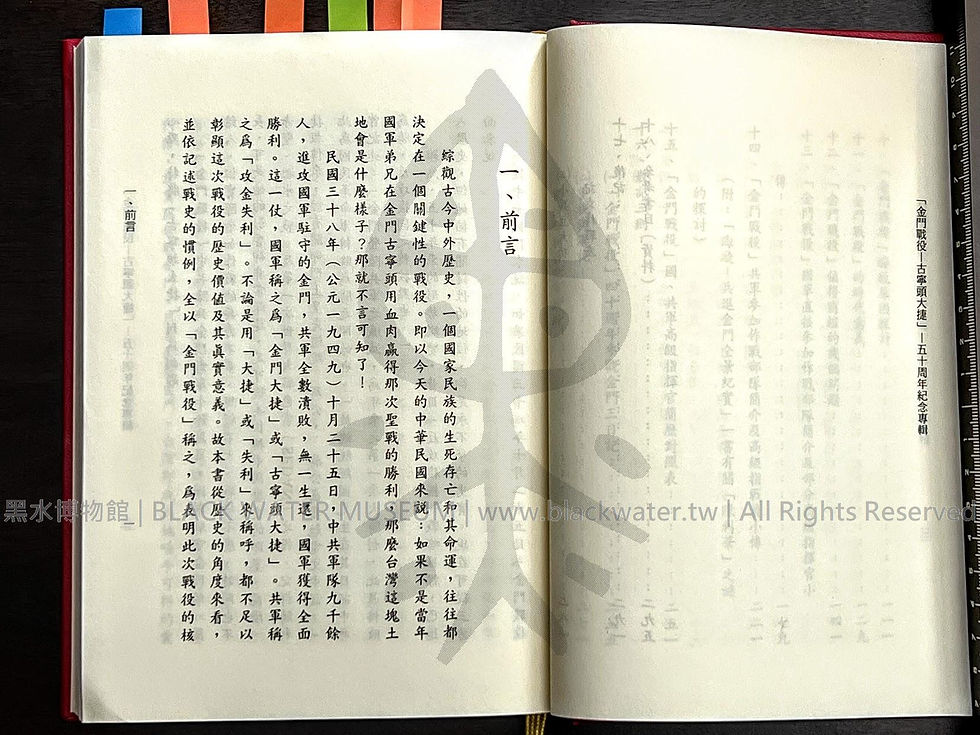 「金門戰役—古寧頭大捷」—五十周年紀念專輯
一、前言
綜觀古今中外歷史，一個國家民族的生死存亡和其命運，往往都
決定在一個關鍵性的戰役。即以今天的中華民國來說：如果不是當年
國軍弟兄在金門古寧頭用血肉贏得那次聖戰的勝利，那麼台灣這塊土
地會是什麼樣子？那就不言可知了！
民國三十八年（公元一九四九）十月二十五日，中共軍隊九千餘
人，進攻國軍駐守的金門，共軍全數潰敗，無一生還，國軍獲得全面
勝利。這一仗，國軍稱之爲「金門大捷」或「古寧頭大捷」。共軍稱
之爲「攻金失利」。不論是用「大捷」或「失利」來稱呼，都不足以
彰顯這次戰役的歷史價值及其眞實意義。故本書從歷史的角度來看，
並依記述戰史的慣例，全以「金門戰役」稱之，爲表明此次戰役的核
一、前言
一
黑水博物館 | BLACK WATER MUSEUM | www.blackwater.tw | All Rights Reserved